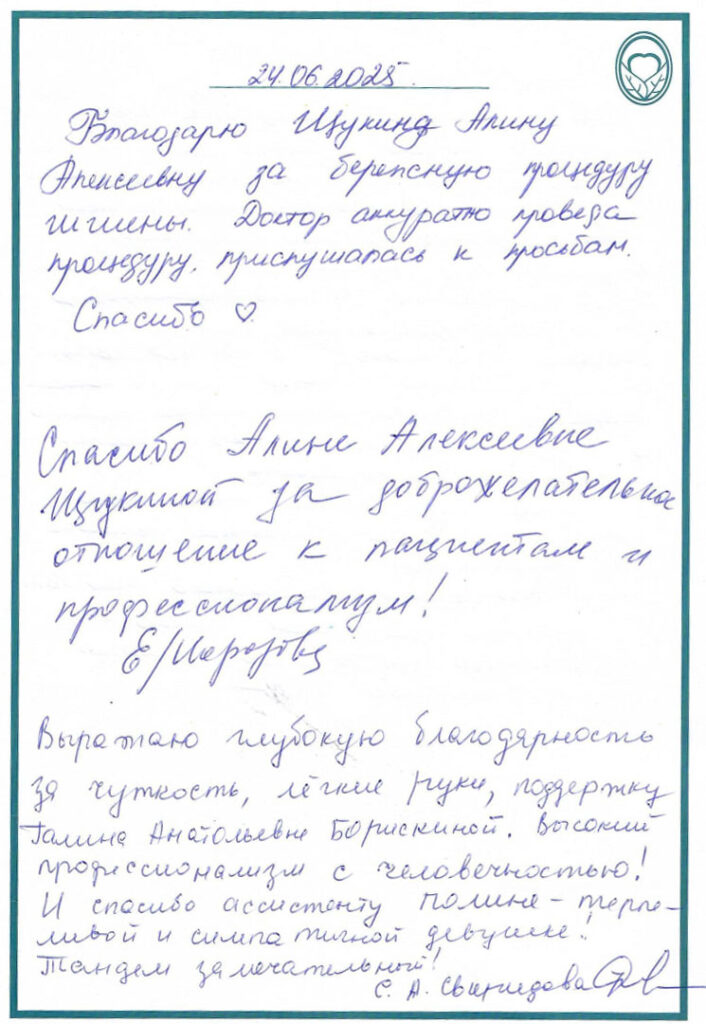 24.06.2025.
Благодарю Щукину Алину
Алексеевну за бережную процедуру
гигиены. Доктор аккуратно провела
процедуру, прислушалась к просьбам.
Спасибо ♡
Спасибо Алине Алексеевне
Щукиной за доброжелательное
отношение к пациентам и
профессионализм!
Выражаю глубокую благодарность
за чуткость, лёгкие руки, поддержку
Галине Анатольевне Борискиной. Высокий
профессионализм с человечностью!
И спасибо ассистенту Полине - терпе-
ливой и симпатичной девушке!
Тандем замечательный!
С. А.